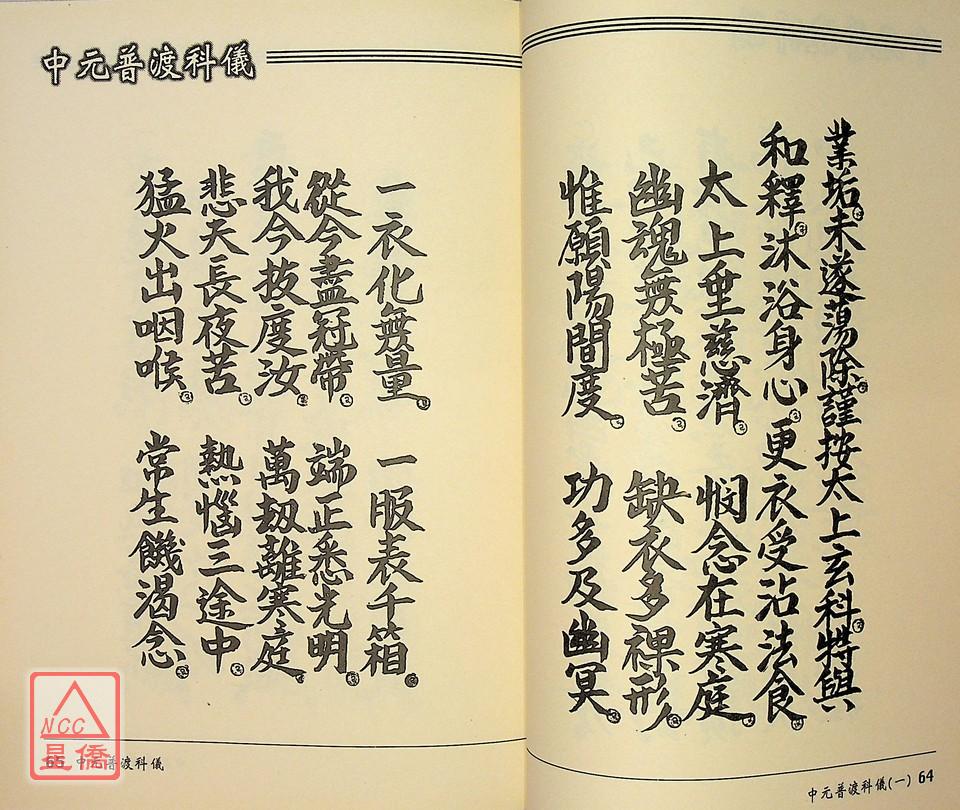 業垢未遂蕩除謹按太上玄科特與
和釋沐浴身心更衣受沾法食
太上垂慈濟 憫念在寒庭
幽魂無極苦 缺衣多裸形
惟願陽間度 功多及幽冥
中元普渡科儀(一) 64
中元普渡科儀
一衣化無量 一服表千箱
從今盡冠帶 端正悉光明
我今拔度汝 萬劫離寒庭
悲夫長夜苦 熱惱三途中
猛火出咽喉 常生饑渴念
65 中元普渡科儀
NCC
星僑